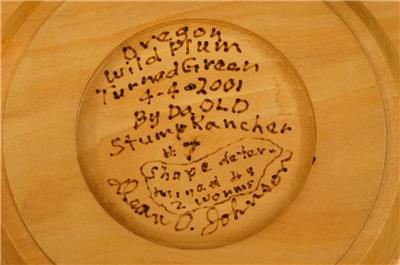 Oregon
Wild Plum
Turned Green
4-4-2001
By Da OLD
Stump Rancher
Shape deter-
mined by
2 worms
Dean O. Johnson